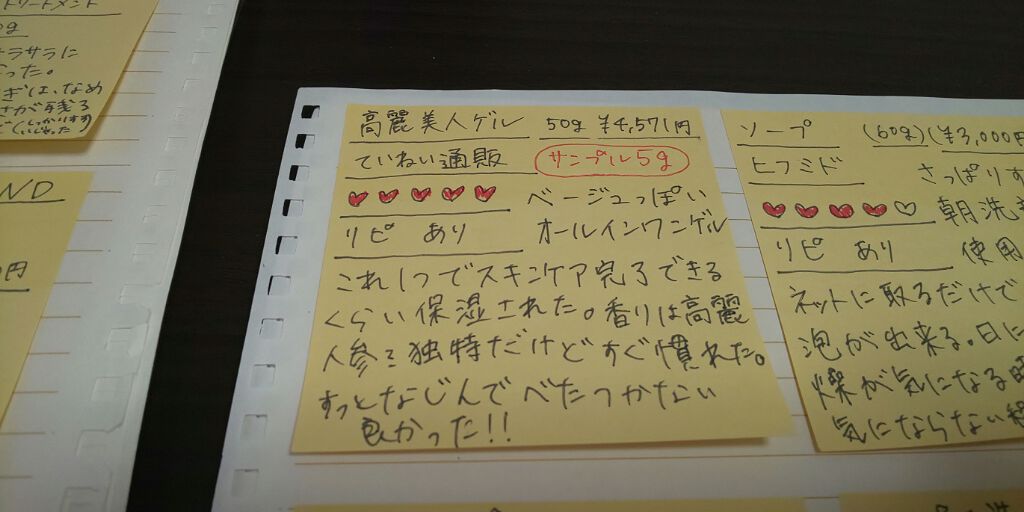 トリートメント
サラサラに
った。
ぎは、なめ
さが残る
ND
円
高麗美人ゲル 50g ¥4,571円
ていねい通販 サンプル5g
ベージュっぽい
リピ あり オールインワンゲル
これ1つでスキンケア完了できる
くらい保湿された。香りは高麗
人参で独特だけどすぐ慣れた。
すっとなじんでべたつかない
良かった!!
ソープ (60g)(¥3,000円
ヒフミド さっぱりす
朝洗
リピ あり 使用
ネットに取るだけで
泡が出来る。日に
燥が気になる時
気にならない程